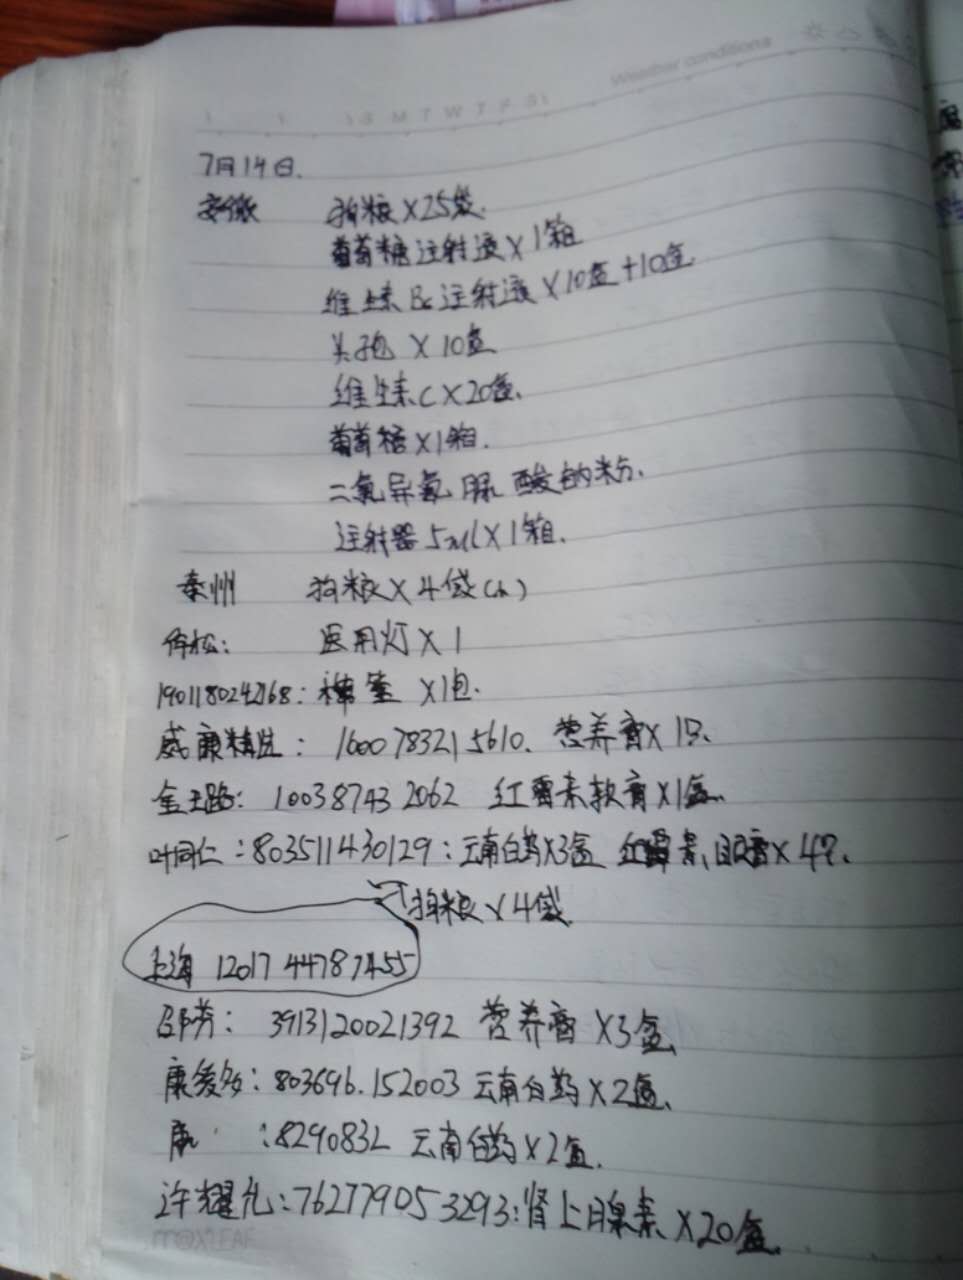 Weather conditions
S M T W T F S
7月14日.
安徽 狗粮×25袋.
葡萄糖注射液×1箱
维生素B6注射液×10盒+10盒
头孢×10盒
维生素C×20盒.
葡萄糖×1箱.
二氯异氰脲酸钠粉.
注射器5ml×1箱.
泰州 狗粮×4袋(小)
医用灯×1
190118024268: 棉签×1包.
威康精选: 1600783215610. 营养膏×1只.
金玉路: 100387432062 红霉素软膏×1盒.
叶同仁:803511430129:云南白药×3盒 红霉素眼膏×4只.
狗粮×4袋
上海 1201744787455
邵芳: 3913120021392 营养膏×3盒
康爱多:803696.152003 云南白药×2盒.
康 :8290832 云南白药×2盒.
许耀允:762779053293:肾上腺素×20盒.
MAXLEAF